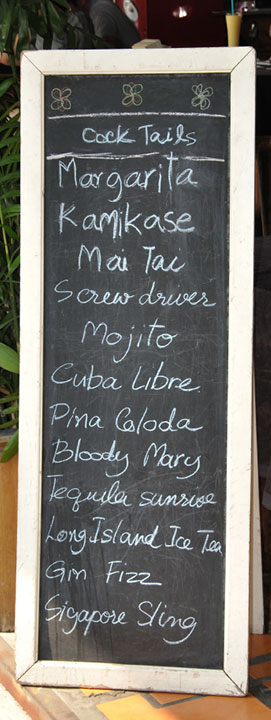 Cock Tails
Margarita
Kamikase
Mai Tai
Screw driver
Mojito
Cuba Libre
Pina Coloda
Bloody Mary
Tequila sunrise
Long Island Ice Tea
Gin Fizz
Sigapore Sling